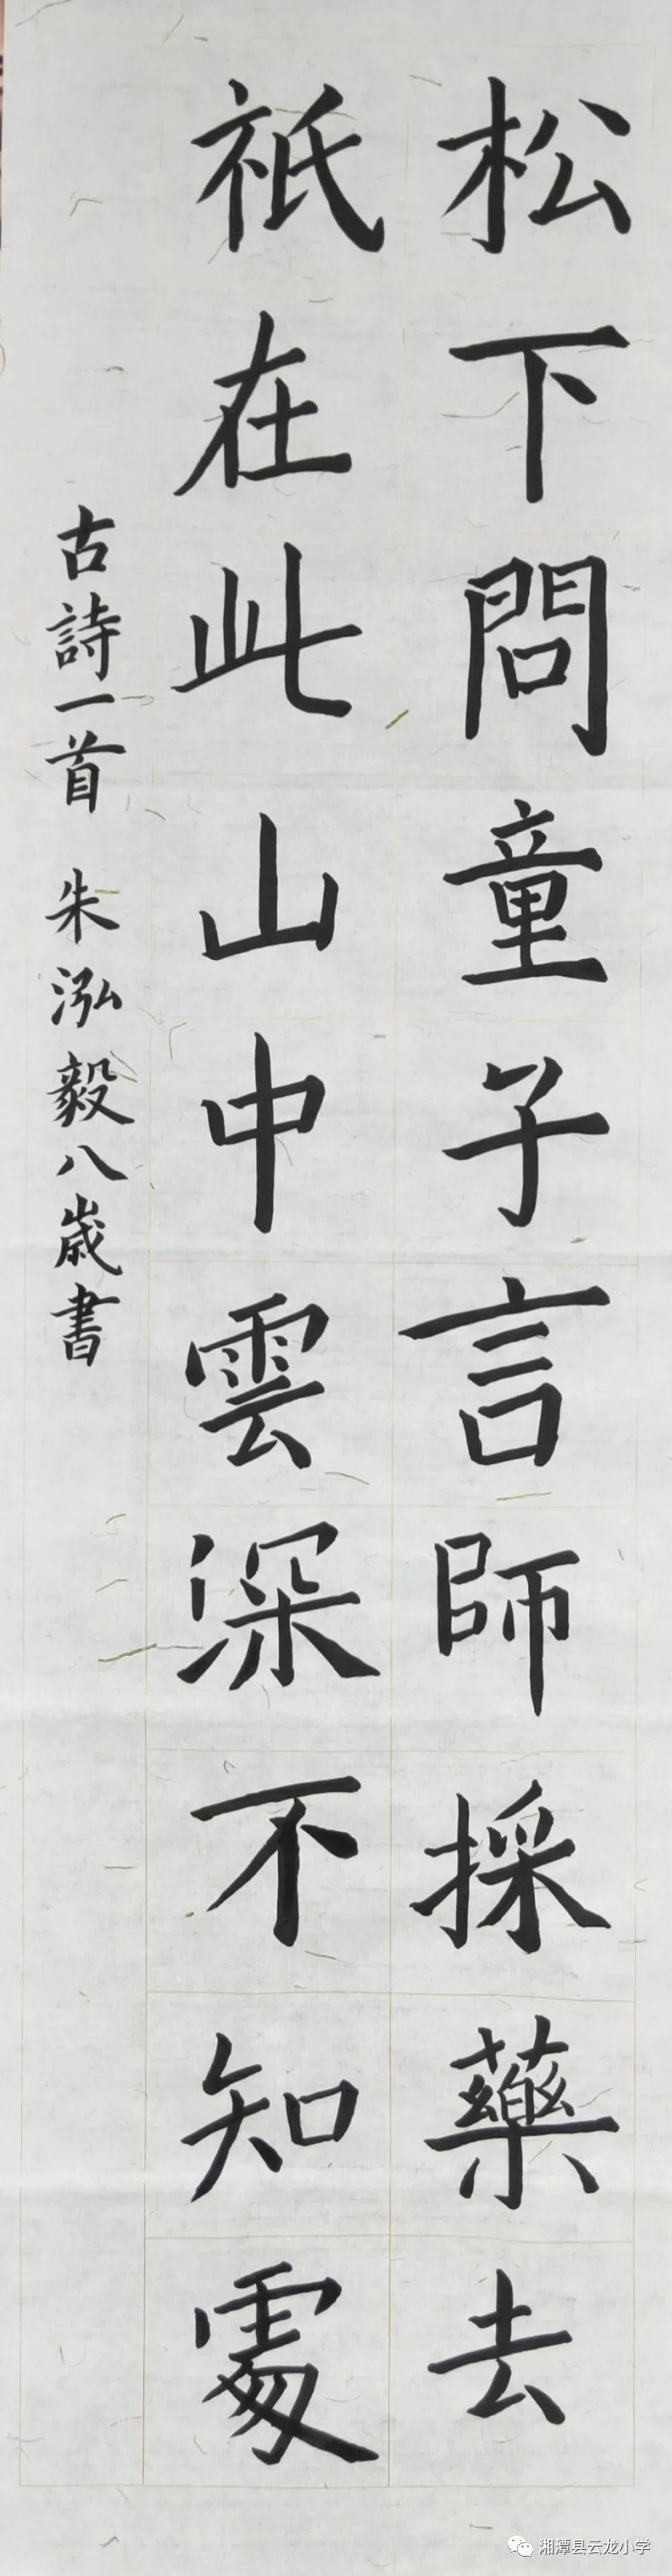 松下問童子言師採藥去
祇在此山中雲深不知處
古詩一首 朱泓毅八歲書
湘潭县云龙小学